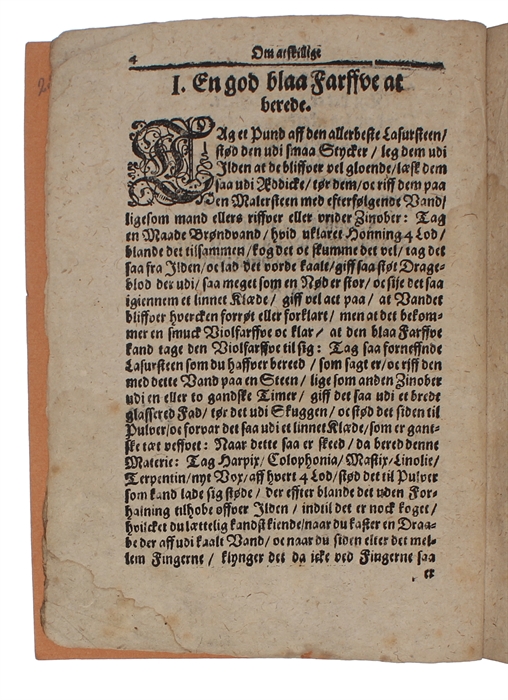 4
Om atskillige
I. En god blaa Farffve at
berede.
TAg et Pund aff den allerbeste Lasursteen/
stød den udi smaa Stycker / leg dem udi
Ilden at de bliffver vel gloende/læsk dem
saa udi Æddicke/tør dem/oc riff dem paa
en Malersteen med efterfølgende Vand/
ligesom mand ellers riffver eller vrider Zinober: Tag
en Maade Brøndvand/ hvid uklaret Honning 4 Lod/
blande det tilsammen/kog det oc skumme det vel/ tag det
saa fra Ilden/oc lad det vorde kaalt/giff saa støt Drage-
blod der udi/saa meget som en Nød er stor/oc sije det saa
igiennem et linnet Klæde/ giff vel act paa / at Vandet
bliffver hvercken forrøt eller forklart/ men at det bekom-
mer en smuck Violfarffve oc klar/ at den blaa Farffve
kand tage den Violfarffve til sig: Tag saa forneffnde
Lasursteen som du haffver bereed / som sagt er/ oc riff den
med dette Vand paa en Steen/ lige som anden Zinober
udi en eller to gandske Timer/ giff det saa udi et brede
glassered Fad/ tør det udi Skuggen/ oc stød det siden til
Pulver/oc forvar det saa udi et linnet Klæde/som er gant-
ske tæt veffvet: Naar dette saa er skeed/ da bered denne
Materie: Tag Harpix/Colophonia/Mastix/Linolie/
Terpentin/nyt Vox/aff hvert 4 Lod/stød det til Pulver
som kand lade sig støde/ der effter blande det uden For-
haining tilhobe øffver Ilden/ indtil det er nock koget/
hvilcket du lættelig kandst kiende/naar du kaster en Draa-
be der aff udi kaalt Vand/ oc naar du siden elter det mel-
lem Fingerne/ klynger det da icke ved Fingerne saa
er